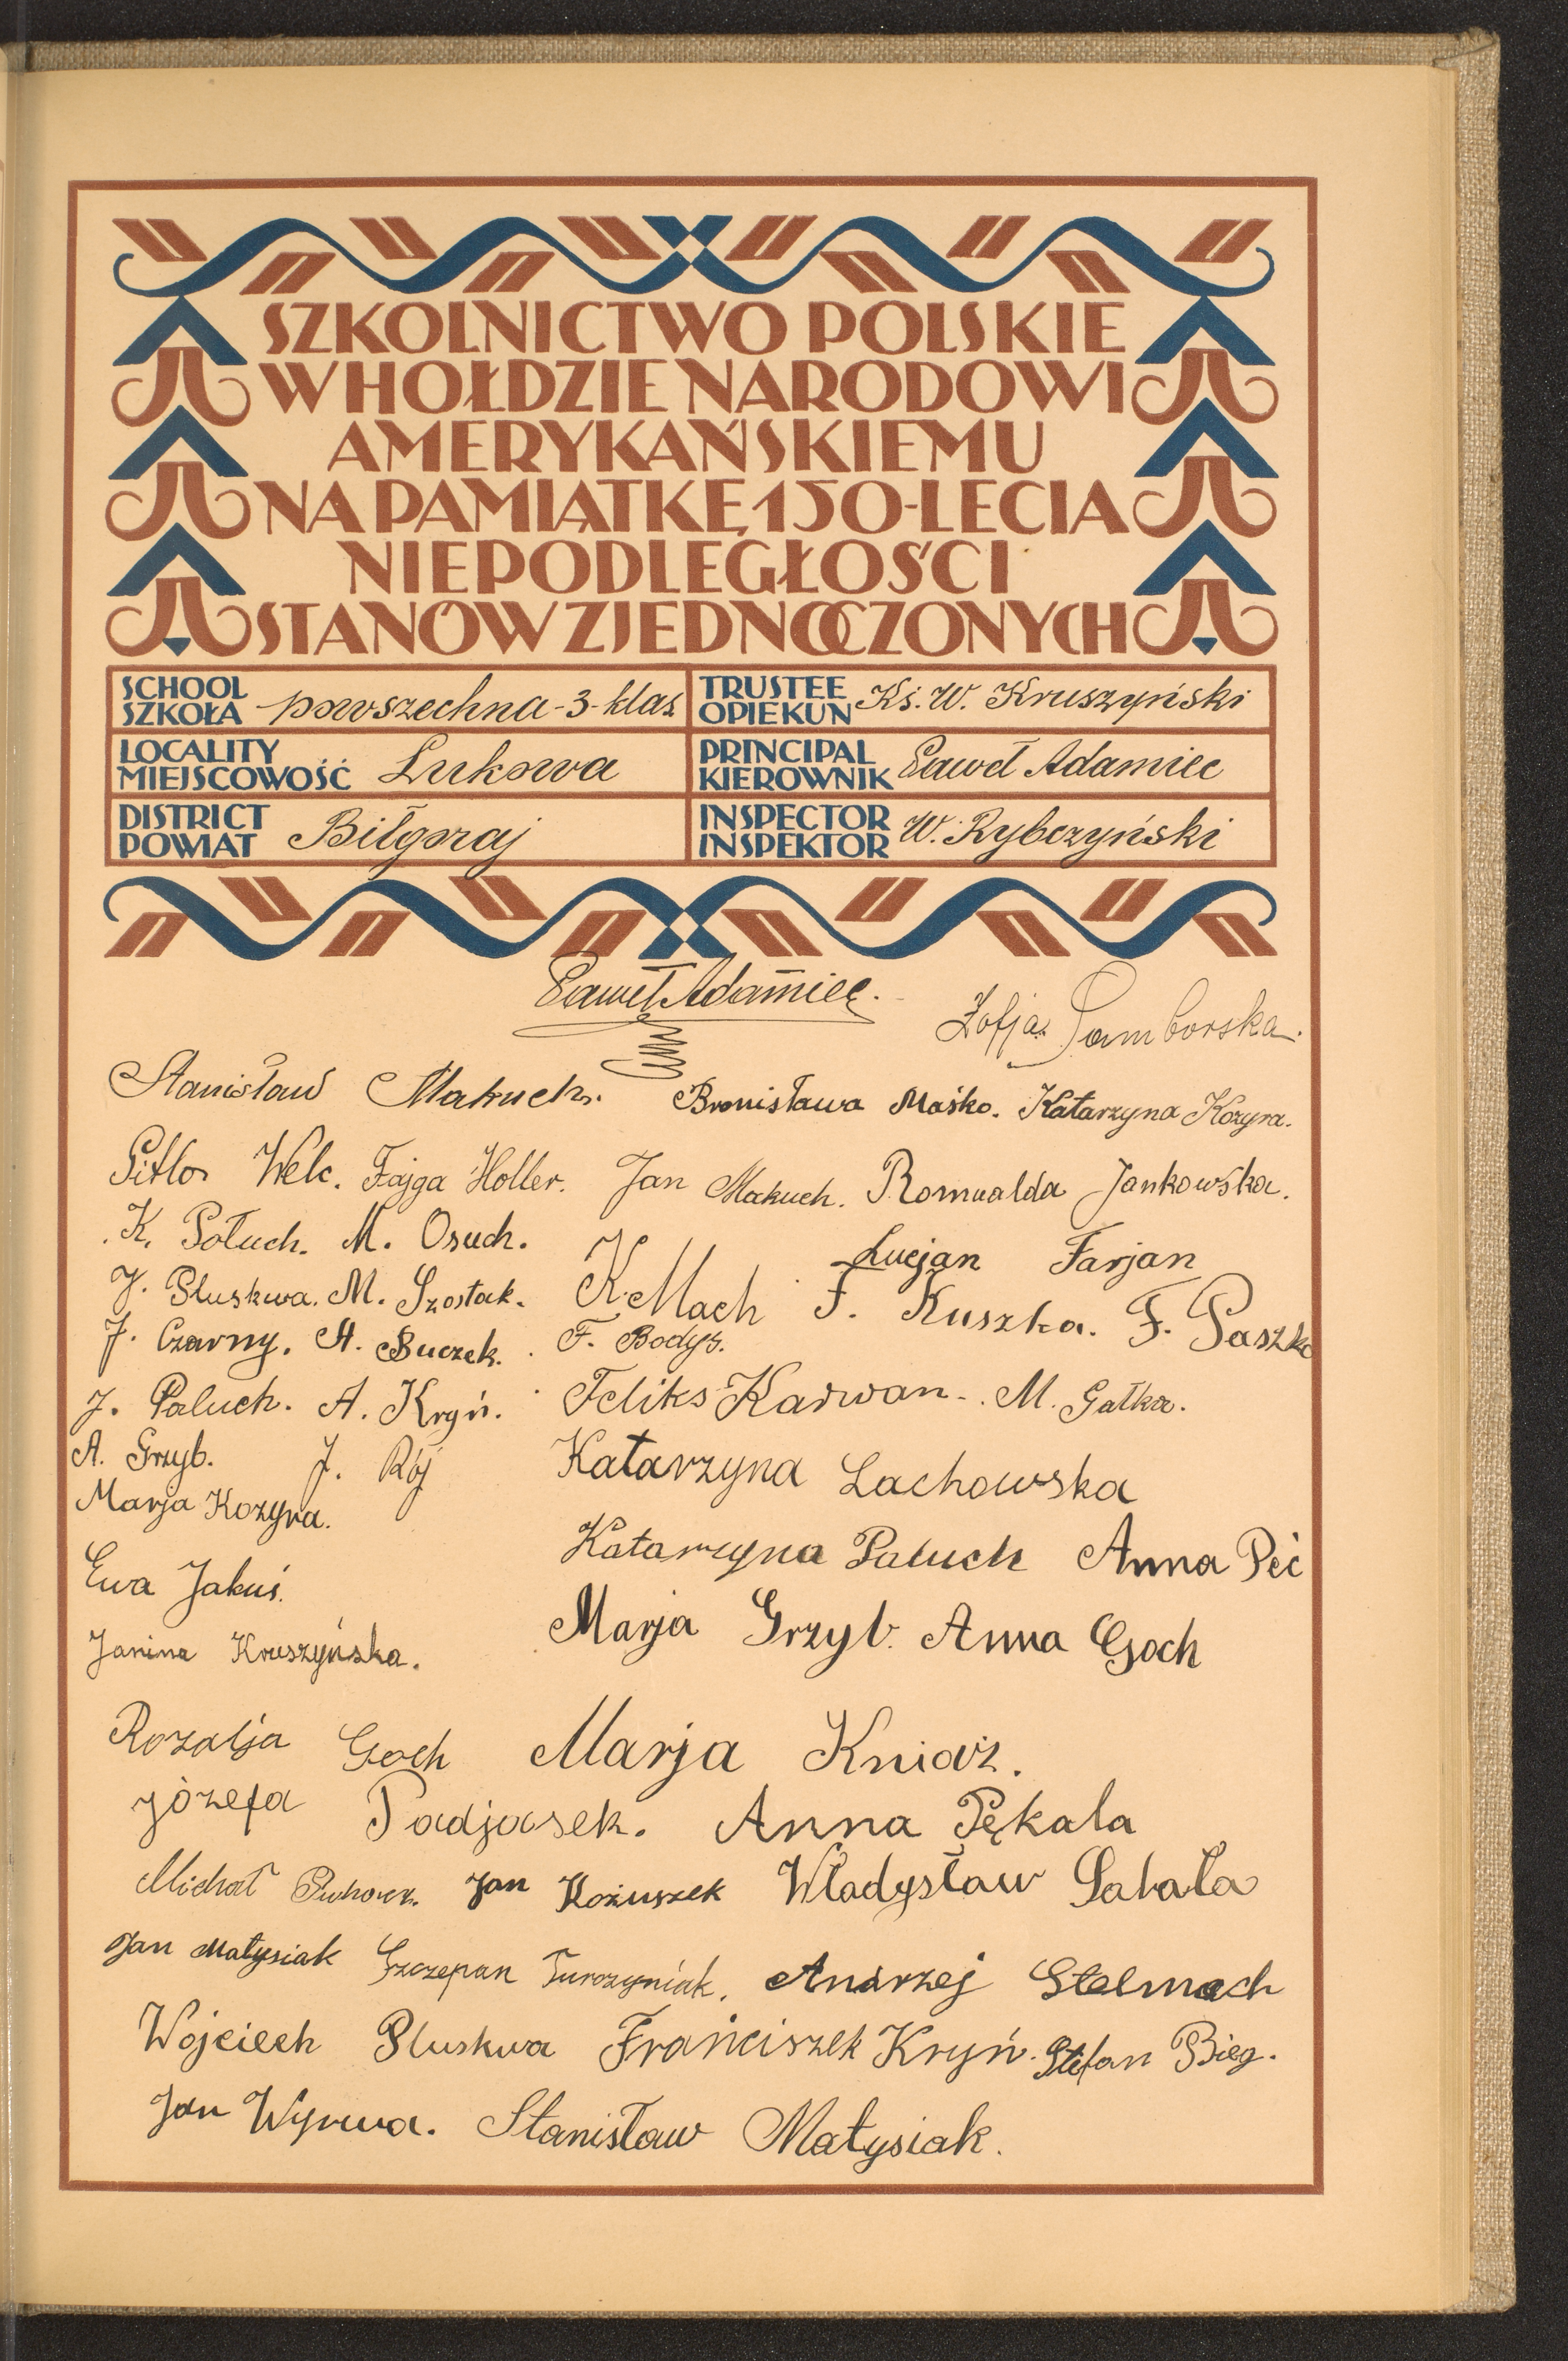 SZKOLNICTWO POLSKIE
W HOŁDZIE NARODOWI
AMERYKAŃSKIEMU
NA PAMIĄTKĘ 150-LECIA
NIEPODLEGŁOŚCI
STANÓW ZJEDNOCZONYCH
SCHOOL
SZKOŁA powszechna-3-klas
TRUSTEE
OPIEKUN Ks. W. Kruszyński
LOCALITY
MIEJSCOWOŚĆ Łukowa
PRINCIPAL
KIEROWNIK Paweł Adamiec
DISTRICT
POWIAT Biłgoraj
INSPECTOR
INSPEKTOR W. Rybczyński
Paweł Adamiec.
Zofja Samborska.
Stanisław Makuch. Bronisława Maśko. Katarzyna Kozyra.
Welc. Fajga Holler. Jan Makuch. Romualda Jankowska.
K. Połuch. M. Osuch. Lucjan Farjan
J. Pluskwa. M. Szostak. K. Mach F. Kuszka. F. Paszko
J. Czarny. A. Buczek. F. Bodys.
J. Paluch. A. Kryń. Feliks Karwan. M. Gałka.
A. Grzyb. J. Rój Katarzyna Lachowska
Marja Kozyra.
Katarzyna Paluch Anna Peć
Ewa Jakuś.
Marja Grzyb. Anna Goch
Janina Kruszyńska.
Rozalja Goch Marja Kniaź.
Józefa Padjasek. Anna Pękala
Michał Jan Kożuszek Władysław Sabała
Jan Małysiak Szczepan Turczyniak. Andrzej Stelmach
Wojciech Pluskwa Franciszek Kryń. Stefan Bieg.
Jan Wyrwa. Stanisław Małysiak.